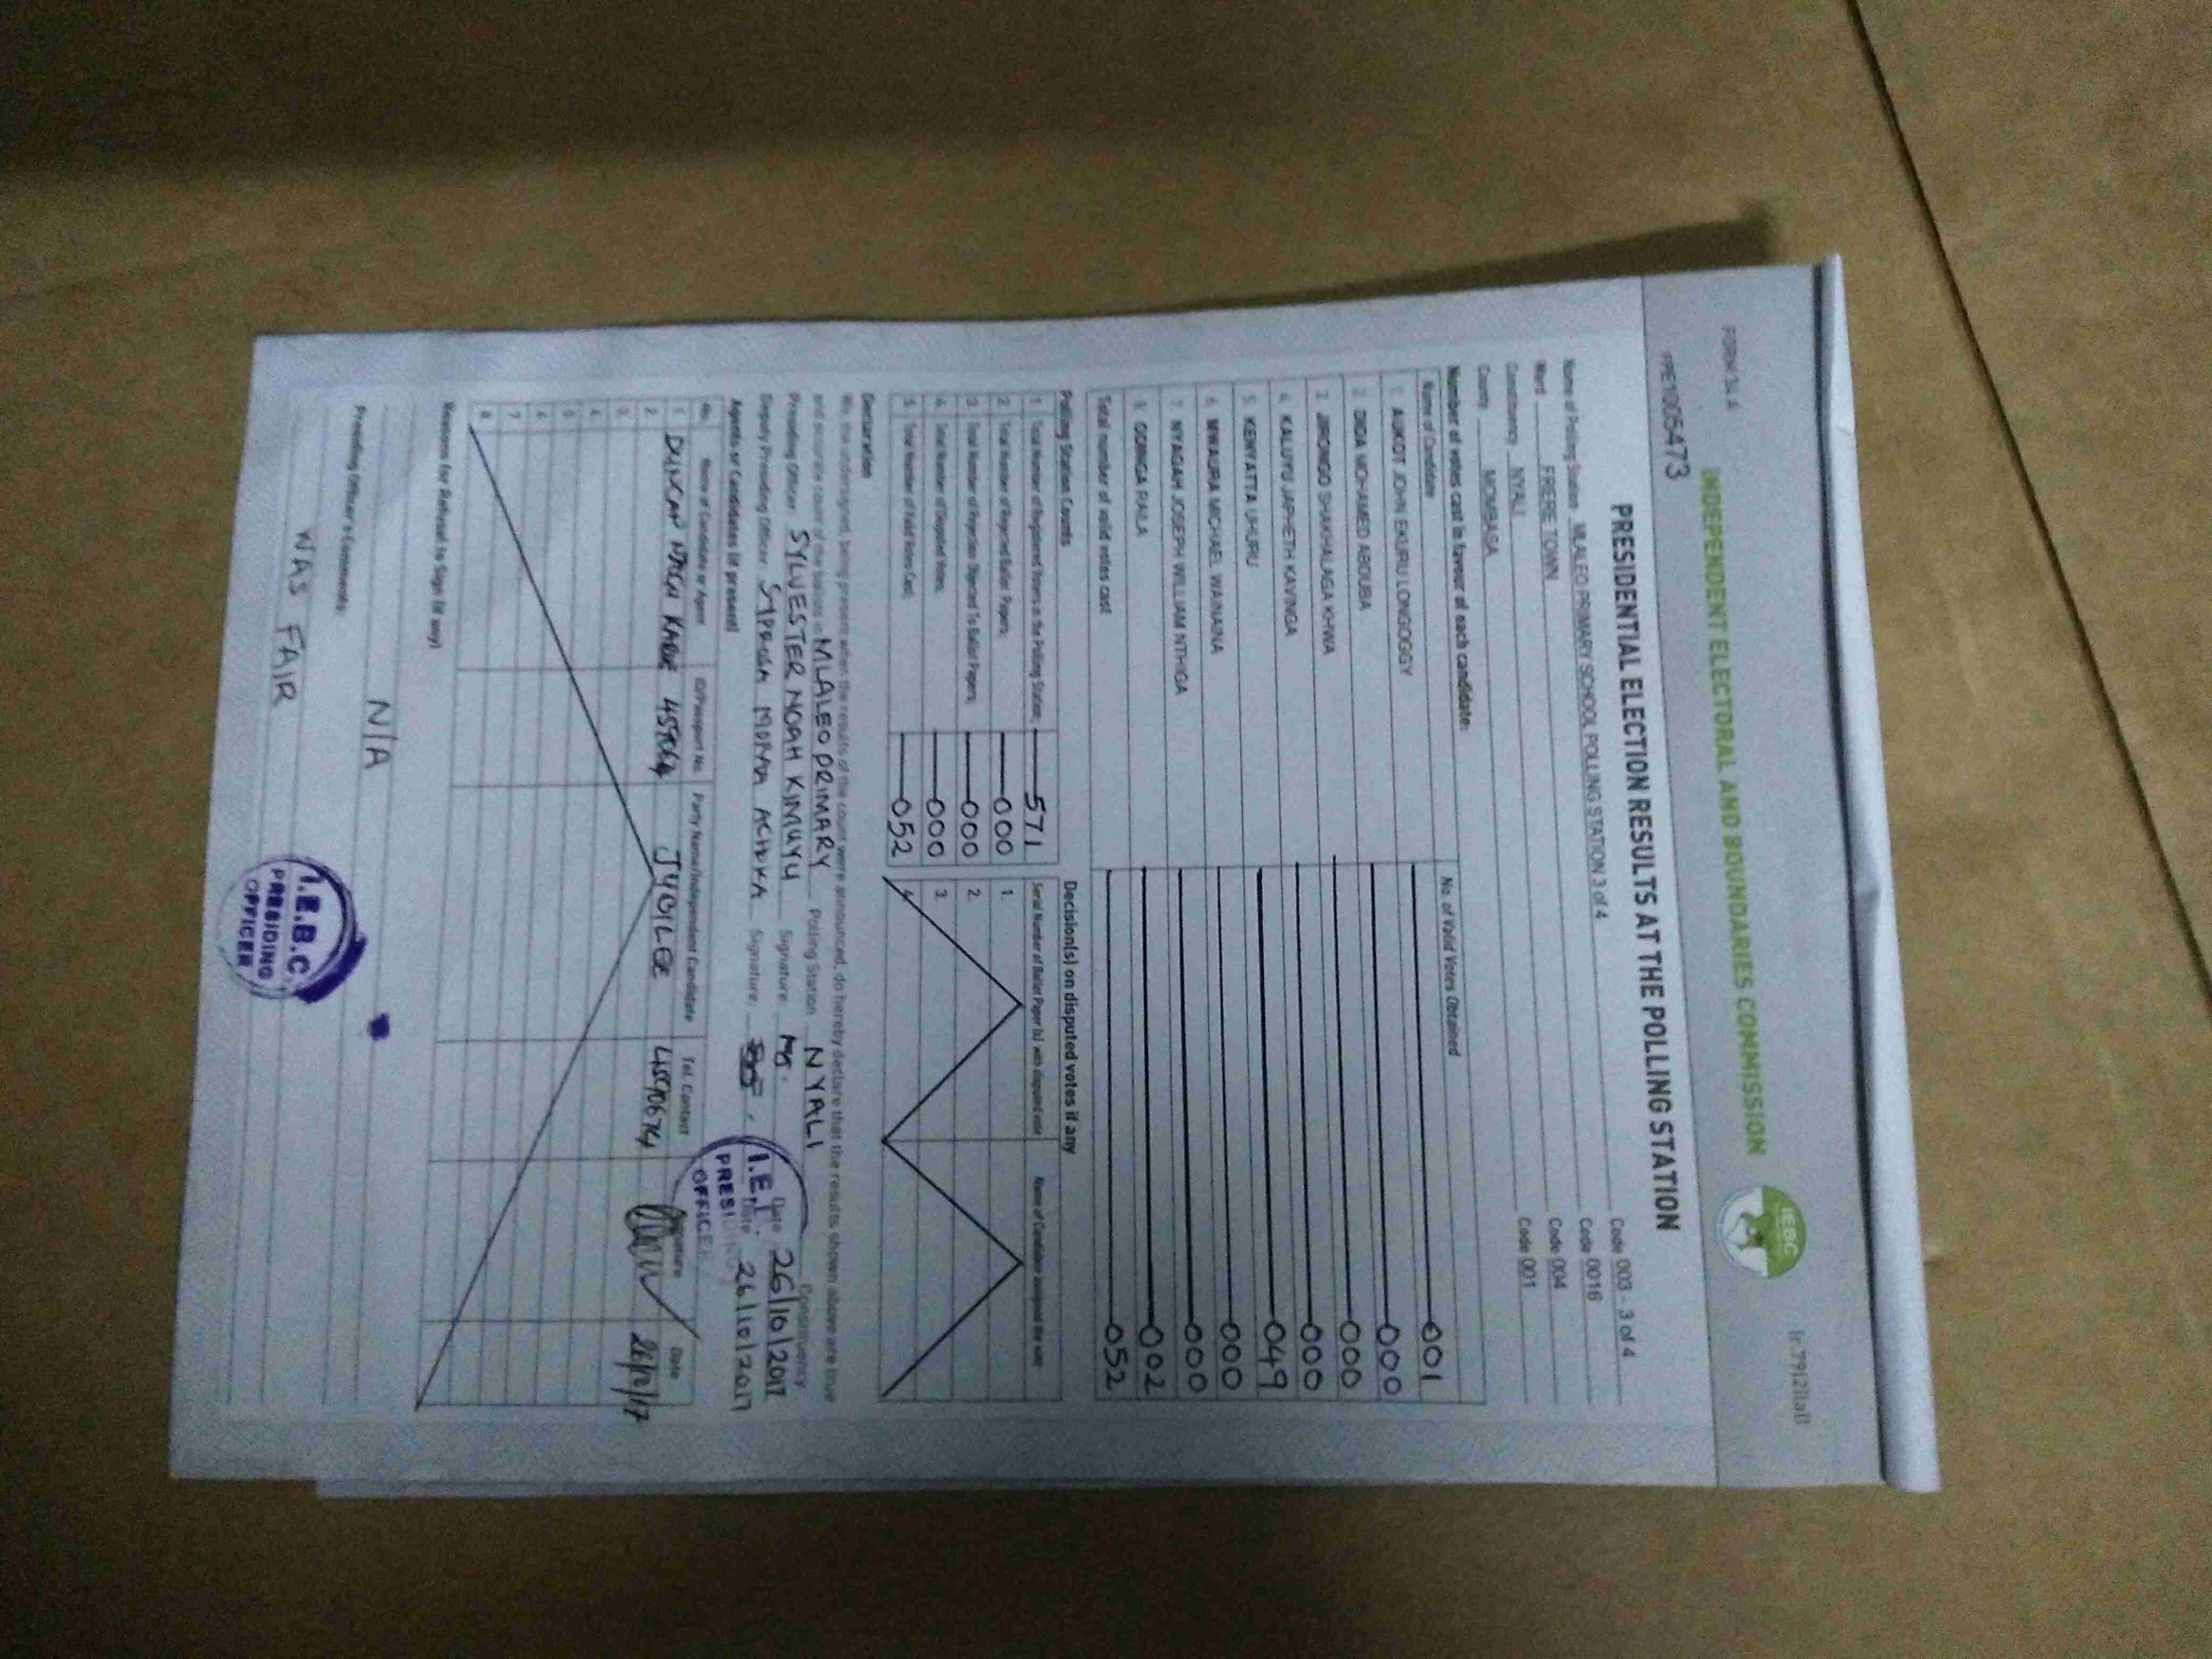 FORM 34 A
INDEPENDENT ELECTORAL AND BOUNDARIES COMMISSION
IEBC
PRESIDENTIAL ELECTION RESULTS AT THE POLLING STATION
Name of Polling Station MLALEO PRIMARY SCHOOL POLLING STATION 3 of 4 Code 003 - 3 of 4
Ward FRERE TOWN Code 0016
Constituency NYALI Code 004
County MOMBASA Code 001
Number of votes cast in favour of each candidate:
Name of Candidate No. of Valid Votes Obtained
1. AUKOT JOHN EKURU LONGOGGY 001
2. DIDA MOHAMED ABDUBA 000
3. JIRONGO SHAKHALAGA KHWA 000
4. KALUYU JAPHETH KAVINGA 000
5. KENYATTA UHURU 049
6. MWAURA MICHAEL WAINAINA 000
7. NYAGAH JOSEPH WILLIAM NTHIGA 000
8. ODINGA RAILA 002
Total number of valid votes cast 052
Polling Station Counts
1. Total Number of Registered Voters in the Polling Station; 571
2. Total Number of Rejected Ballot Papers; 000
3. Total Number of Rejection Objected To Ballot Papers; 000
4. Total Number of Disputed Votes; 000
5. Total Number of Valid Votes Cast; 052
Decision(s) on disputed votes if any
Serial Number of Ballot Paper (s) with disputed vote Name of Candidate assigned the vote
1.
2.
3.
4.
Declaration
We, the undersigned, being present when the results of the count were announced, do hereby declare that the results shown above are true
and accurate count of the ballots in MLALEO PRIMARY Polling Station NYALI Constituency
Presiding Officer SYLVESTER NOAH KIMUYU Signature Date 26/10/2017
Deputy Presiding Officer Signature Date 26/10/2017
I.E.
PRESI
OFFICE
Agents or Candidates (if present)
No. Name of Candidate or Agent ID/Passport No. Party Name/Independent Candidate Tel. Contact Signature Date
1 DUNCAN KARUE JUBILEE 26/10/17
2
3
4
5
6
7
8
Reasons for Refusal to Sign (if any)
N/A
Presiding Officer's Comments
WAS FAIR
I.E.B.C
PRESIDING
OFFICER